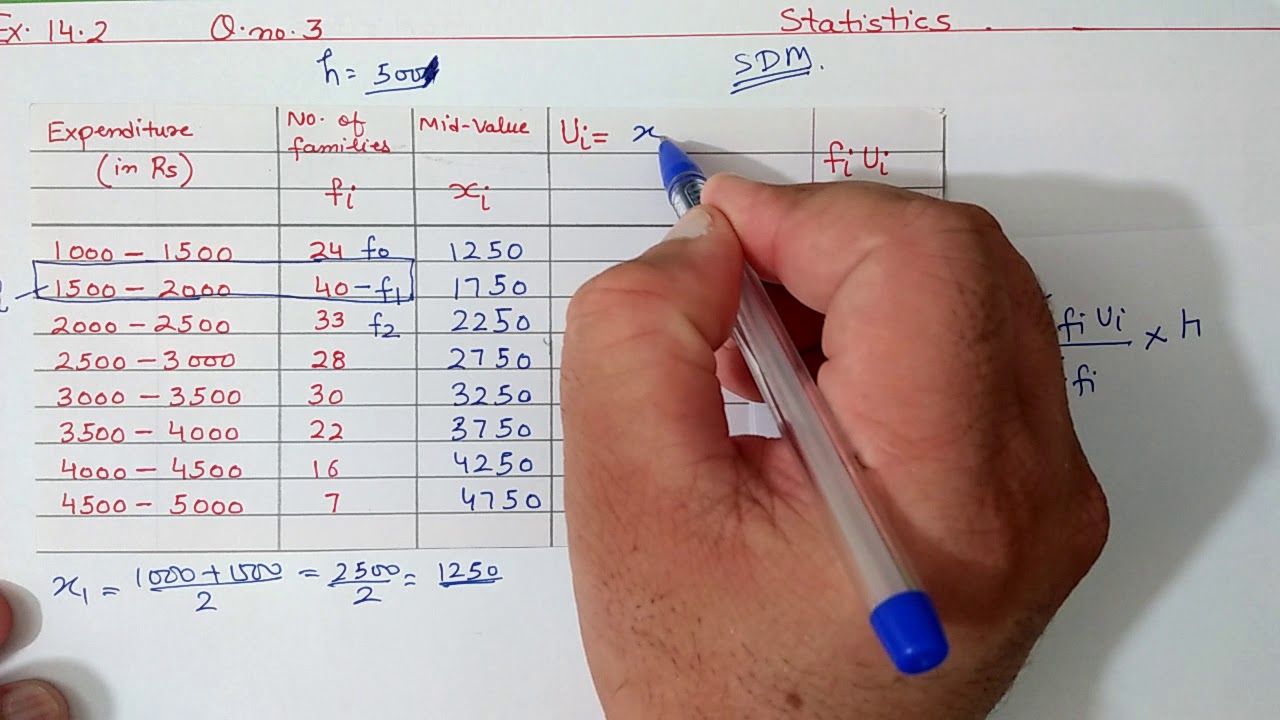 Ex. 14.2 Q.no.3 Statistics
h = 500
SDM.
Expenditure (in Rs)
No. of families fi
Mid-Value xi
Ui = x
fi Ui
1000 – 1500 24 f0 1250
1500 – 2000 40 – f1 1750
2000 – 2500 33 f2 2250
2500 – 3000 28 2750
3000 – 3500 30 3250
3500 – 4000 22 3750
4000 – 4500 16 4250
4500 – 5000 7 4750
fi Ui / fi × h
x1 = 1000+1500 / 2 = 2500 / 2 = 1250